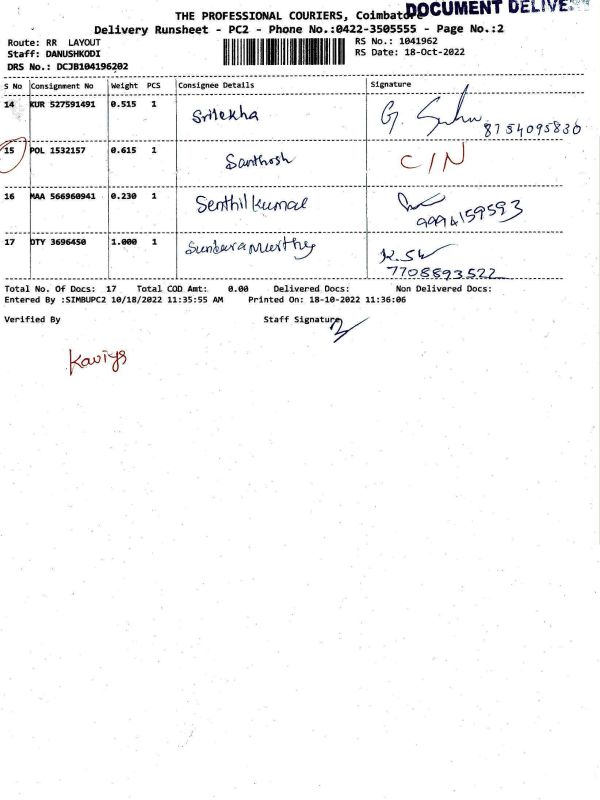 THE PROFESSIONAL COURIERS, Coimbatore
DOCUMENT DELIVE
Delivery Runsheet - PC2 - Phone No.:0422-3505555 - Page No.:2
Route: RR LAYOUT
RS No.: 1041962
Staff: DANUSHKODI
RS Date: 18-Oct-2022
DRS No.: DCJB104196202
S No Consignment No Weight PCS Consignee Details Signature
14 KUR 527591491 0.515 1 Srilekha G. 8754095830
15 POL 1532157 0.615 1 Santhosh C/N
16 MAA 566960941 0.230 1 Senthil Kumar 9994159593
17 DTY 3696450 1.000 1 Sundara Murthy
7708893522
Total No. Of Docs: 17 Total COD Amt: 0.00 Delivered Docs: Non Delivered Docs:
Entered By :SIMBUPC2 10/18/2022 11:35:55 AM Printed On: 18-10-2022 11:36:06
Verified By Staff Signature
Kaviya